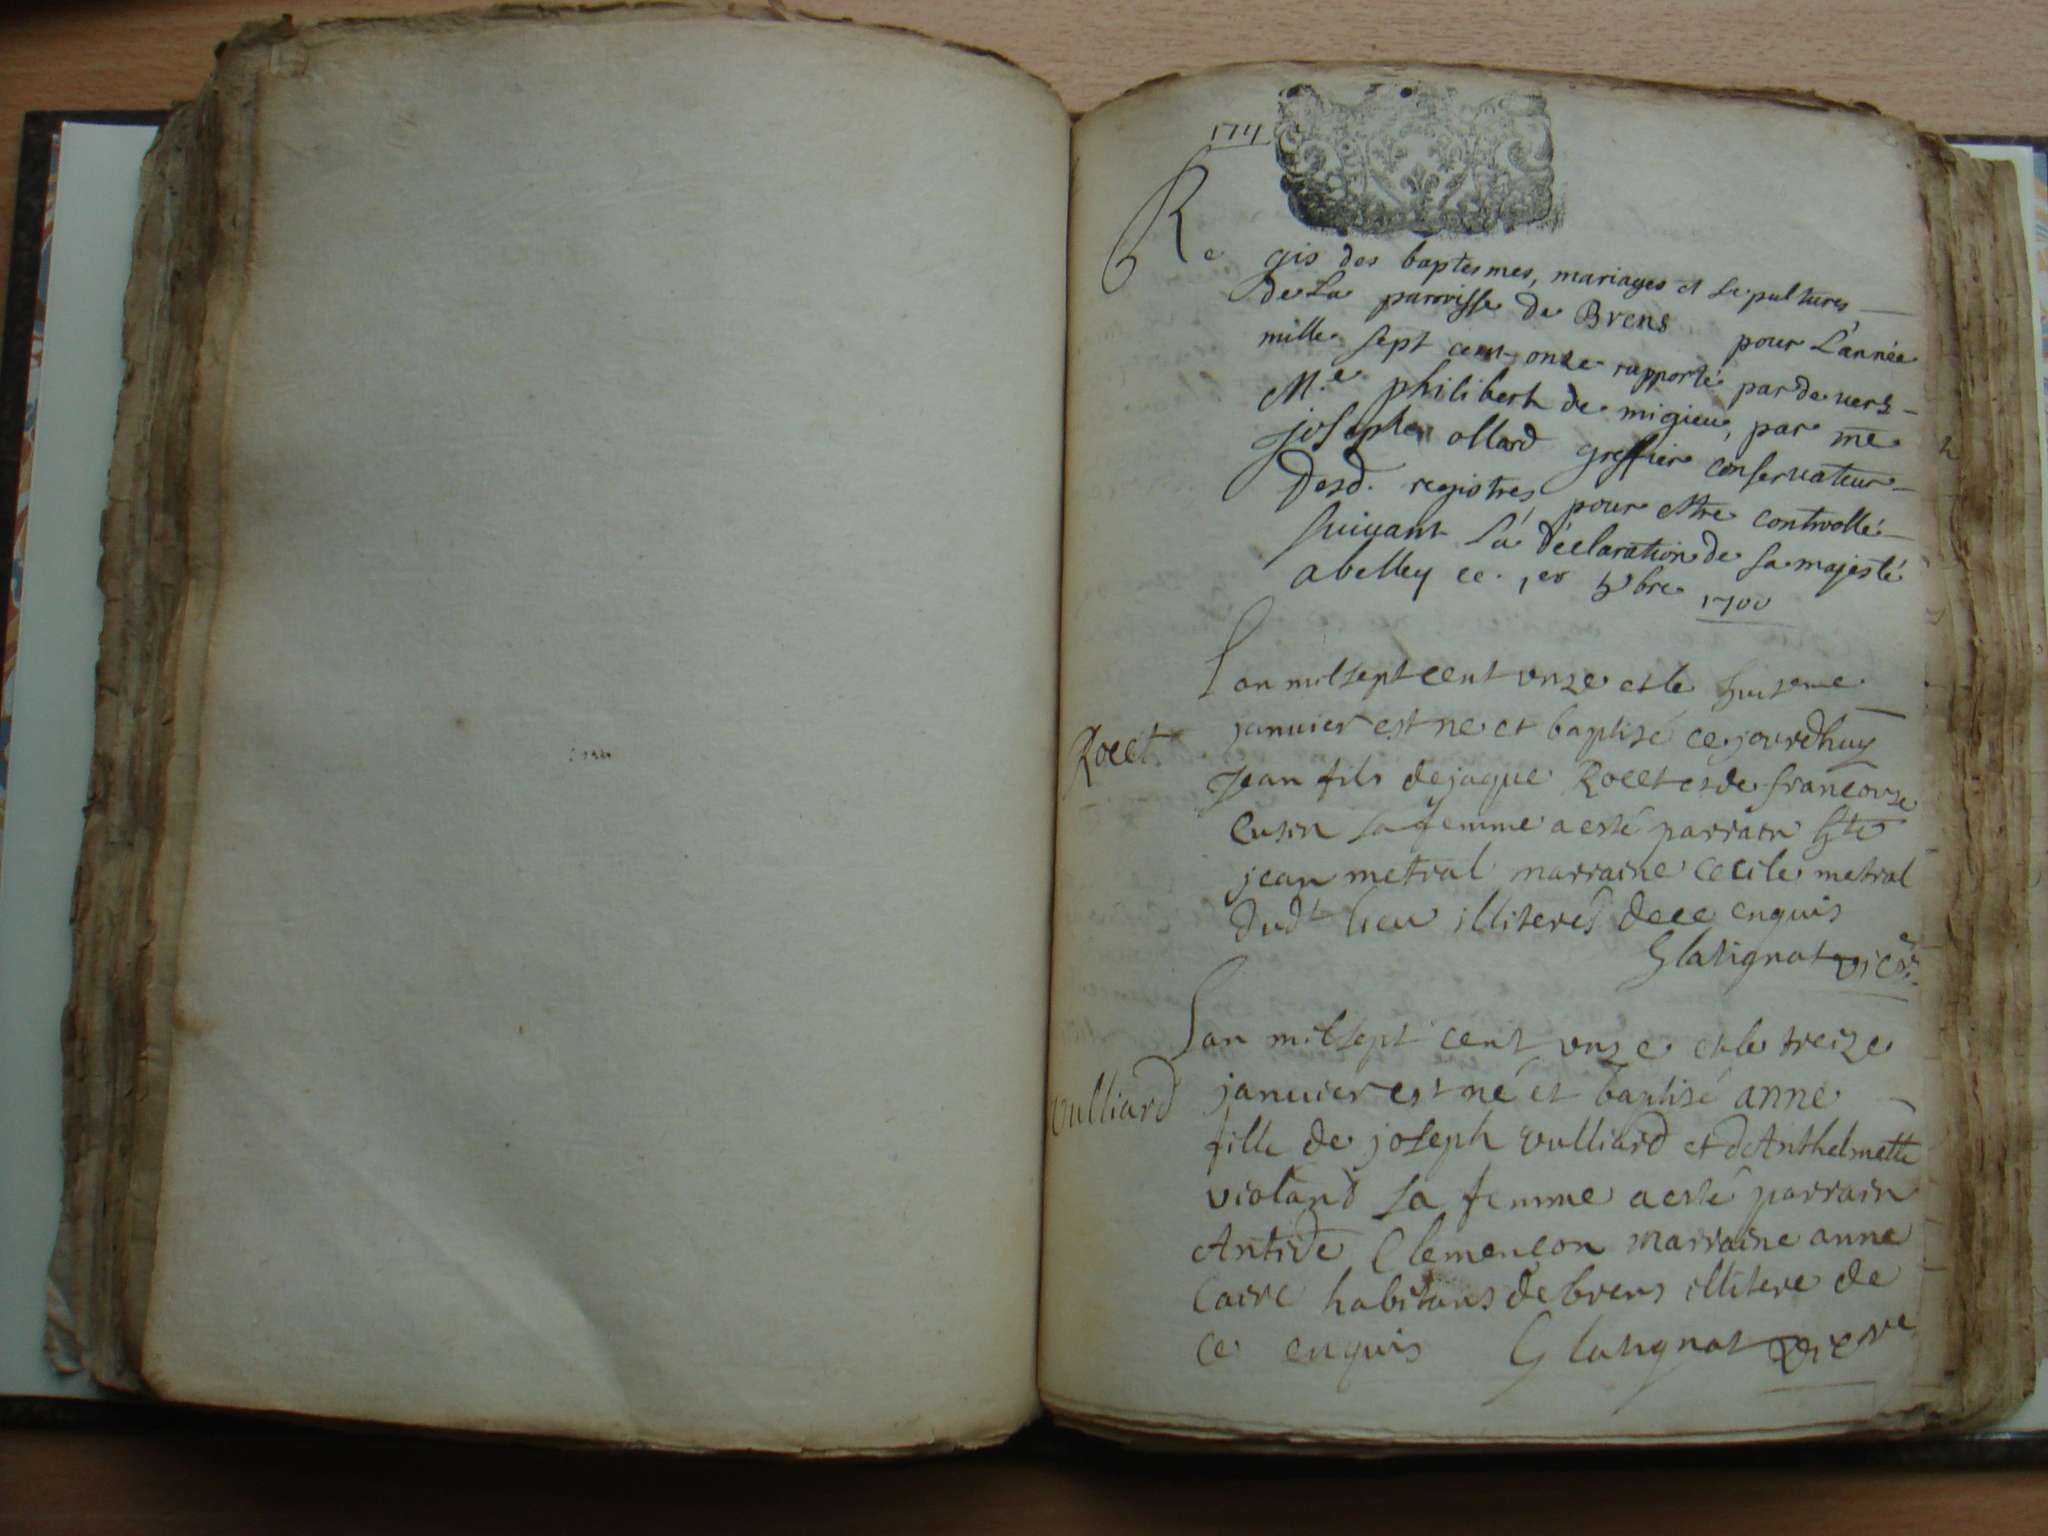 1711
Re gis des baptesmes, mariages et sepultures
de La parroisse de Brens pour L'année
mille sept cent onze rapporté par devers
M.e philibert de migieu, par me
joseph ollard greffier conservateur
desd. registres pour estre controllé
suivant La déclaration de sa majesté
abelley ce 1er bre 1700
Lan mil sept cent unze et le huiteme
januier est ne et baptisé cejourdhuy
Rocet
Jean fils de jaque Rocet et de francoise
Cusin sa femme a esté parrain
jean metral marraine cecile metral
dudt lieu illiteres dece enquis
Glatignat vicre
Lan mil sept cent unze et le treize
januier est né et baptisé anne
vulliard
fille de joseph vulliard et dAnthelmette
violand sa femme a esté parrain
Antide Clemençon marraine anne
Caire habitans de brens illitere de
ce enquis Glatignat vicre